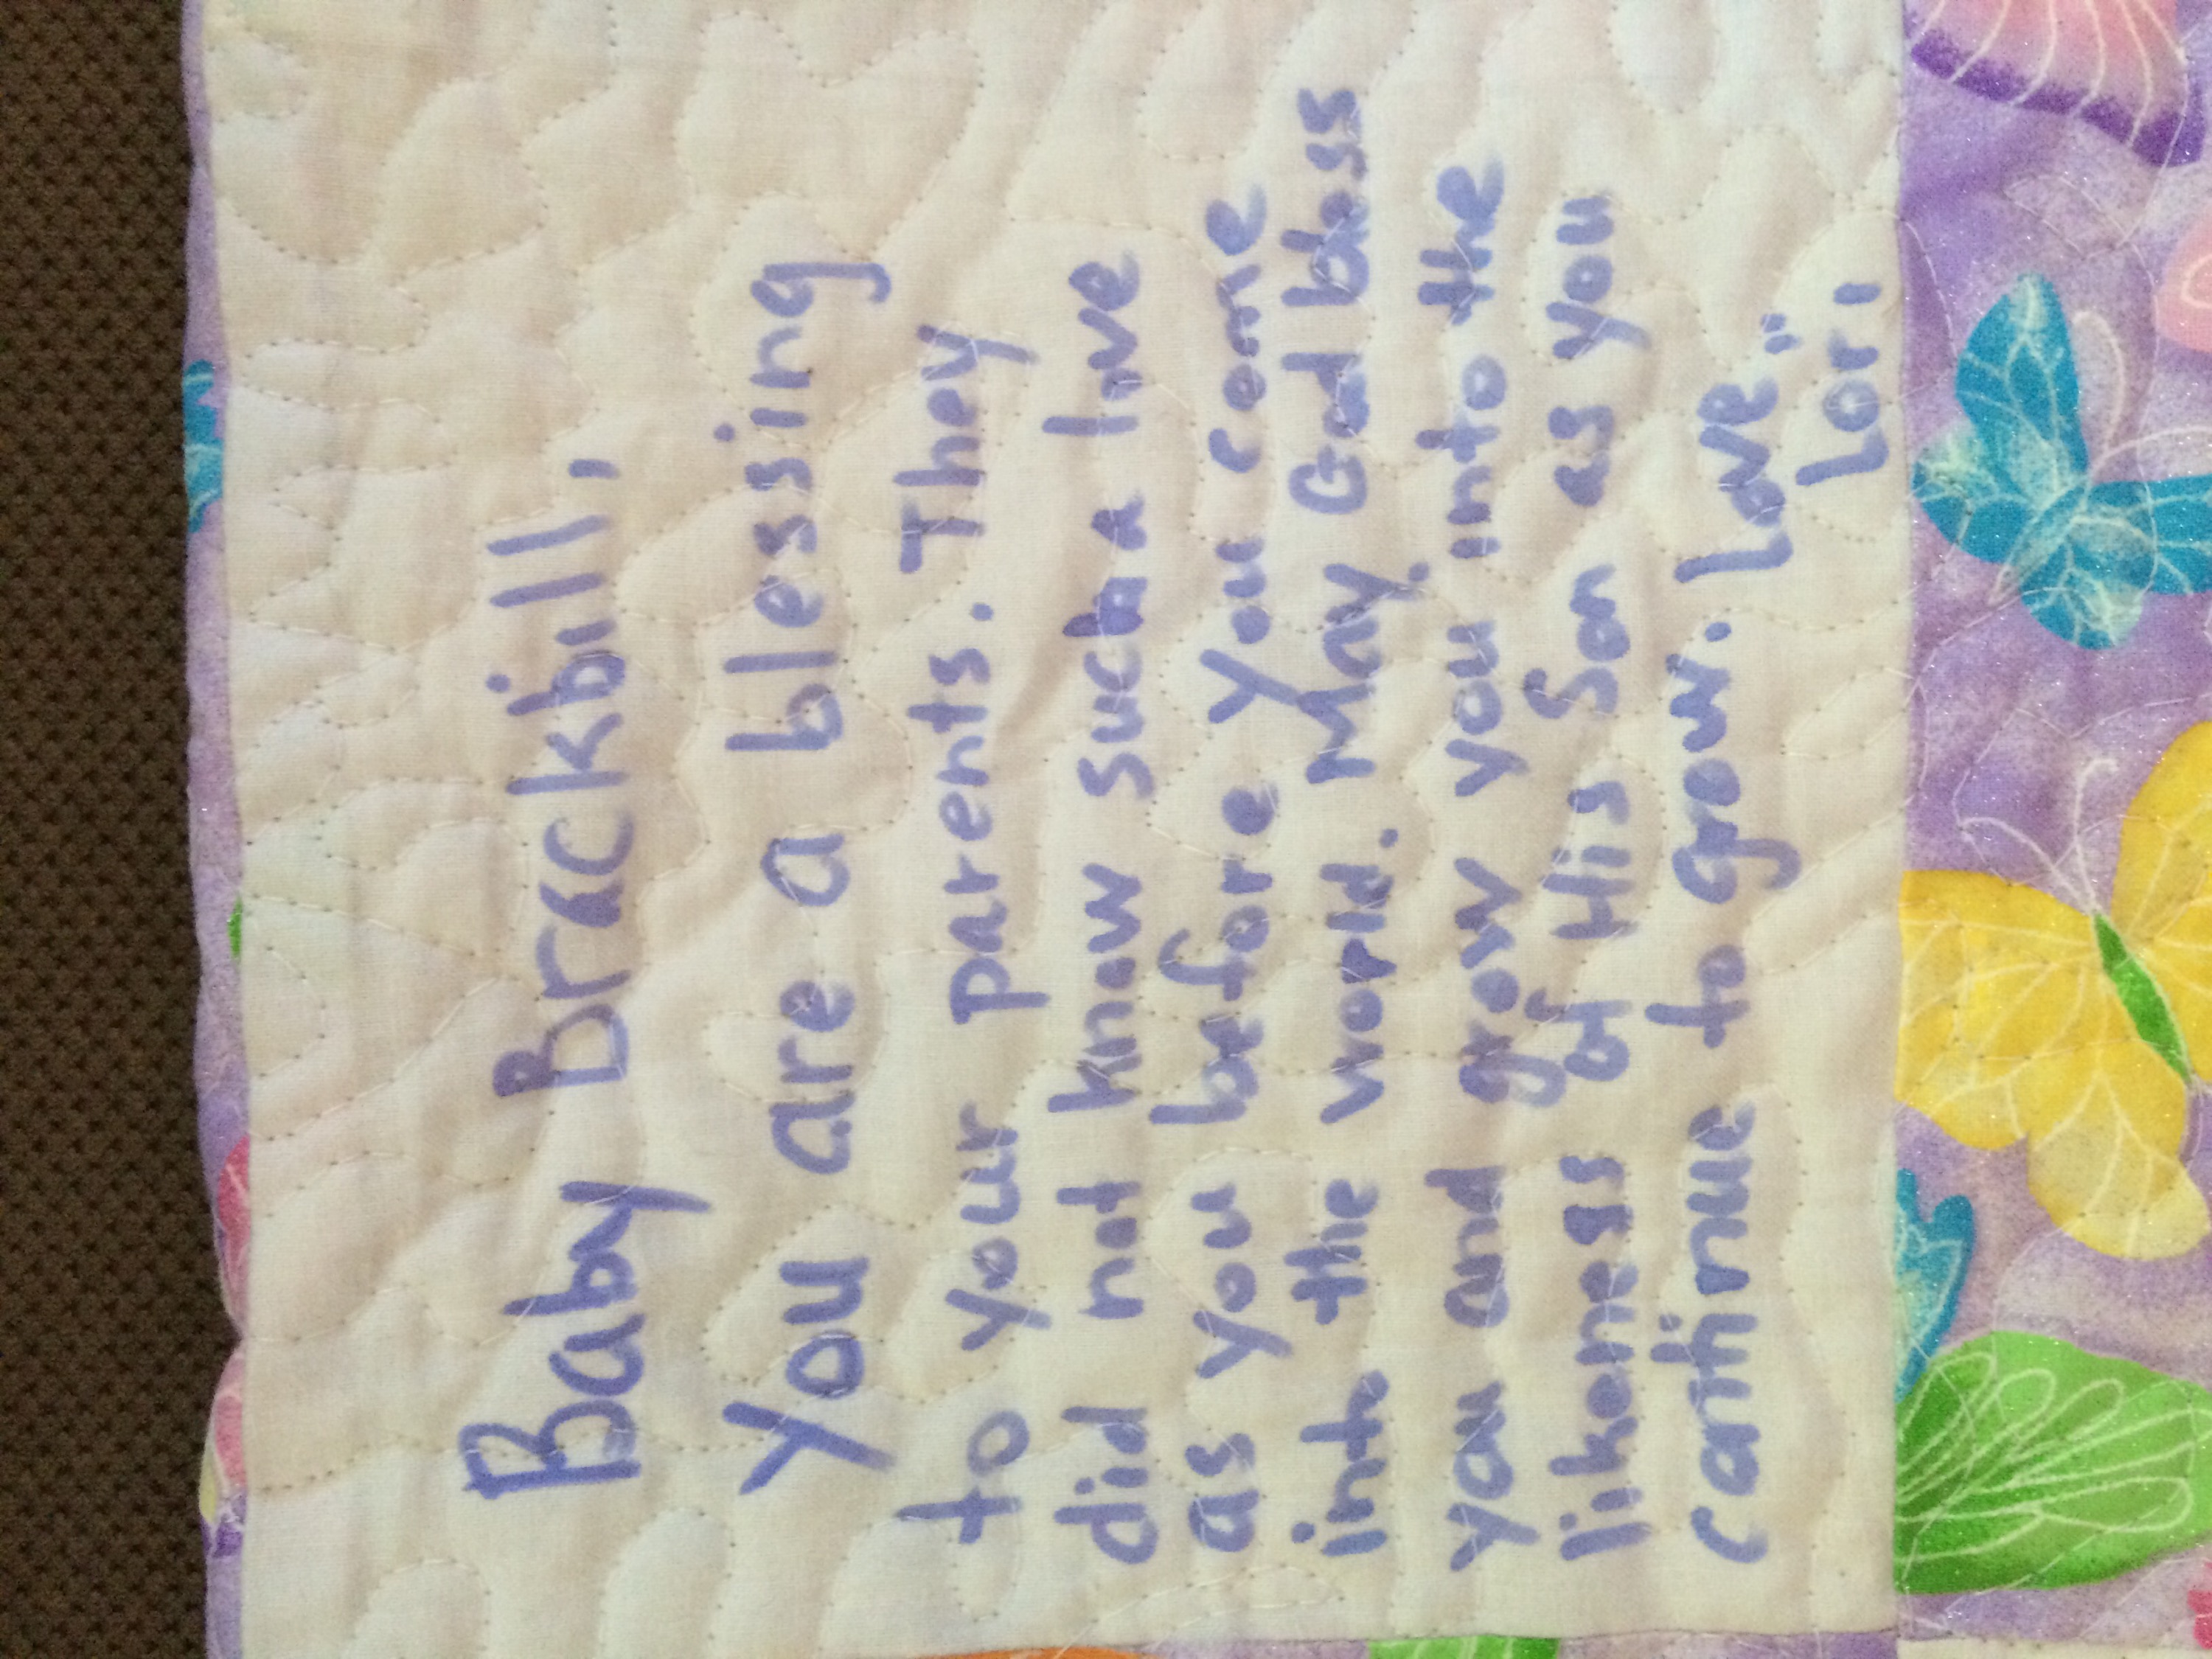 Baby Brackbill,
You are a blessing
to your parents. They
did not know such a love
as you before you come
into the world. May God bless
you and grow you into the
likeness of His Son as you
continue to grow. Love"
Lori